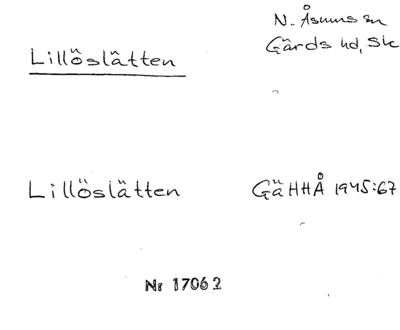 Lillöslätten
N. Åsums sn
Gärds hd, Sk
Lillöslätten
GäHHÅ 1945:67
Nr 17062